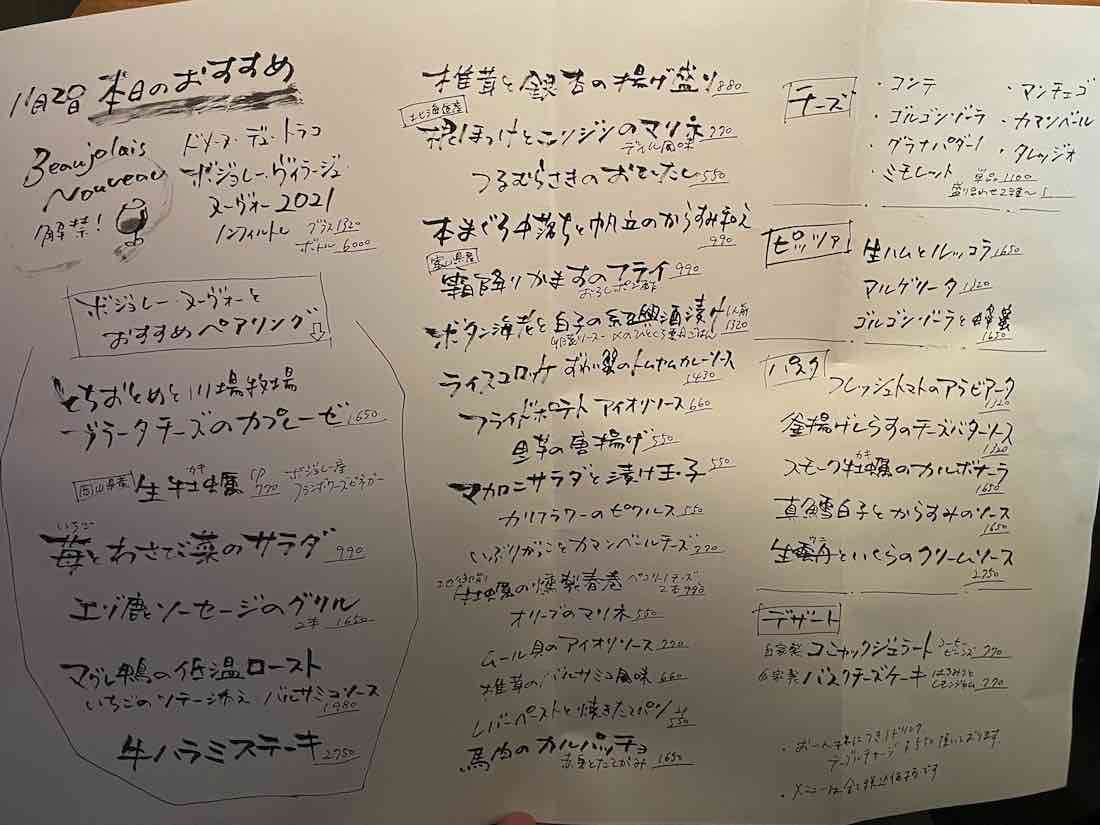 11月20日 本日のおすすめ
Beaujolais
Nouveau
解禁!
ドメーヌ・デュ・トラコ
ボジョレー・ヴィラージュ・
ヌーヴォー 2021
ノンフィルトレ グラス1320
ボトル 6000
ボジョレー・ヌーヴォーと
おすすめペアリング
とちおとめと川場牧場
ブラータチーズのカプレーゼ 1650
岡山県産 生牡蠣 カキ 1P 770 ボジョレー産
フランボワーズビネガー
いちご
苺とわさび菜のサラダ 990
エゾ鹿ソーセージのグリル
2本 1650
マグレ鴨の低温ロースト
いちごのソテー添え バルサミコソース
1980
牛ハラミステーキ 2750
椎茸と銀杏の揚げ盛り 880
北海道産
根ほっけとニンジンのマリネ 770
ディル風味
つるむらさきのおひたし 550
本まぐろ中落ちと帆立のからすみ和え
990
富山県産
霜降りかますのフライ 990
おろしポン酢
ボタン海老と白子の紹興酒漬け 1人前
1320
〆のひとくち
ライスコロッケ ずわい蟹のトムヤムカレーソース
1430
フライドポテト アイオリソース 660
昆布の唐揚げ 550
マカロニサラダと漬け玉子 550
カリフラワーのピクルス 550
いぶりがっことカマンベールチーズ 770
牡蠣の燻製春巻 ペコリーノチーズ
2本 990
オリーブのマリネ 550
ムール貝のアイオリソース 770
椎茸のバルサミコ風味 660
レバーペーストと焼きたてパン
550
馬肉のカルパッチョ
赤身とたてがみ 1650
チーズ
・コンテ
・マンチェゴ
・ゴルゴンゾーラ
・カマンベール
・グラナパダーノ
・タレッジオ
・ミモレット
単品 1100
盛り合わせ2種〜
ピッツァ
生ハムとルッコラ 1650
マルゲリータ 1320
ゴルゴンゾーラと蜂蜜
1650
パスタ
フレッシュトマトのアラビアータ
1320
釜揚げしらすのチーズバターソース
1320
カキ
スモーク牡蠣のカルボナーラ
1650
真鱈白子とからすみのソース
1650
ウニ
生雲丹といくらのクリームソース
2750
デザート
自家製 コニャックジェラート コーヒー
ビーンズ 770
自家製 バスクチーズケーキ はちみつと
レモンジャム 770
・お一人様につき1ドリンク
テーブルチャージ ¥550 頂いております
・メニューは全て税込価格です